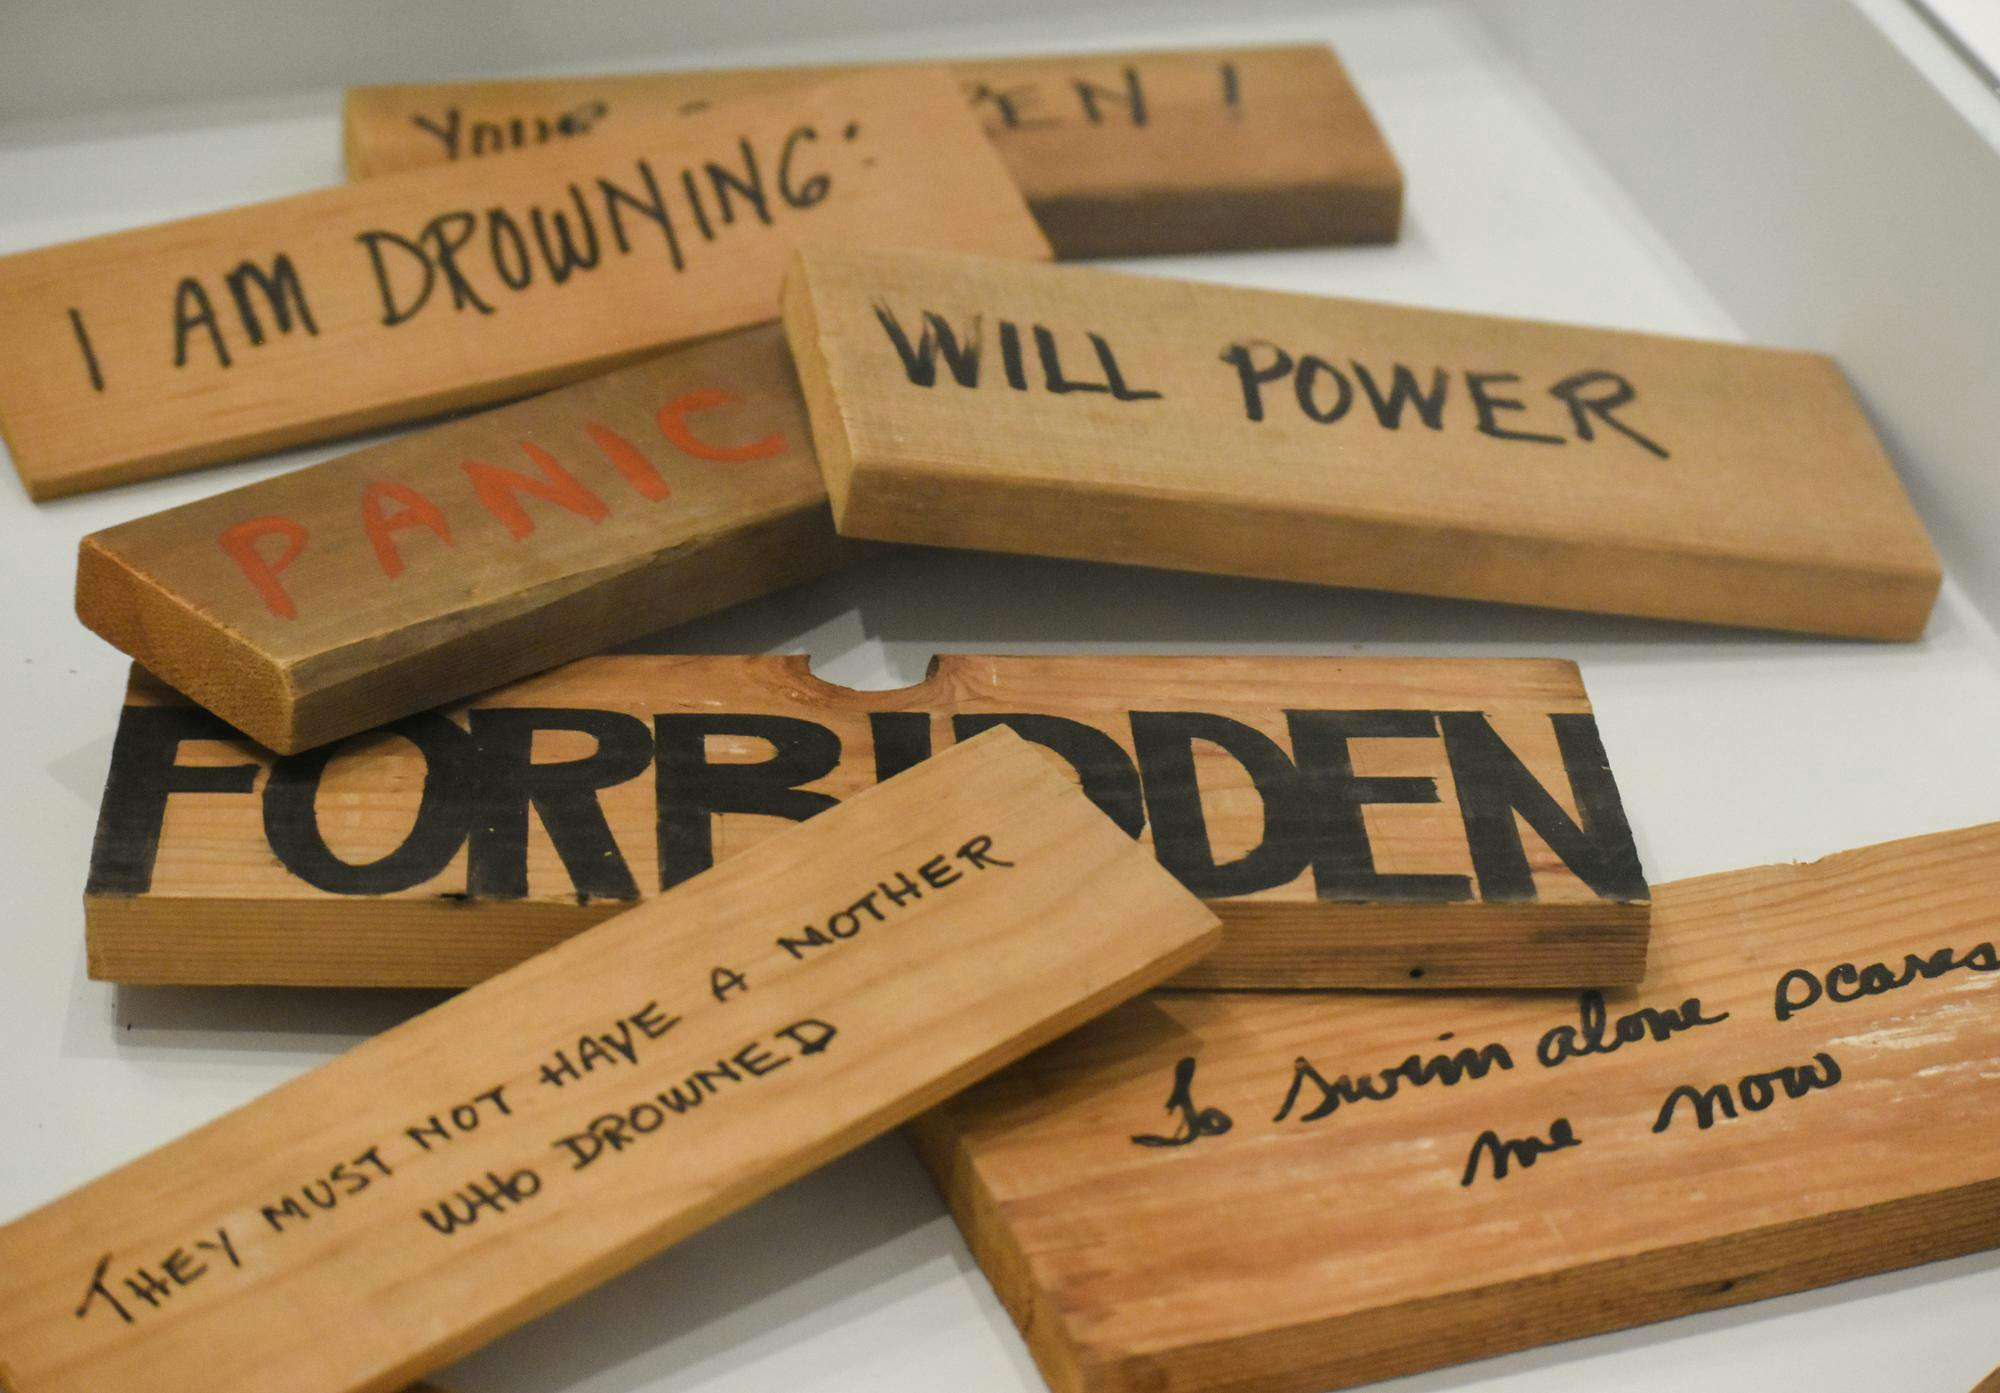 I AM DROWNING:
WILL POWER
PANIC
FORBIDDEN
THEY MUST NOT HAVE A MOTHER
WHO DROWNED
To swim alone scares
me now